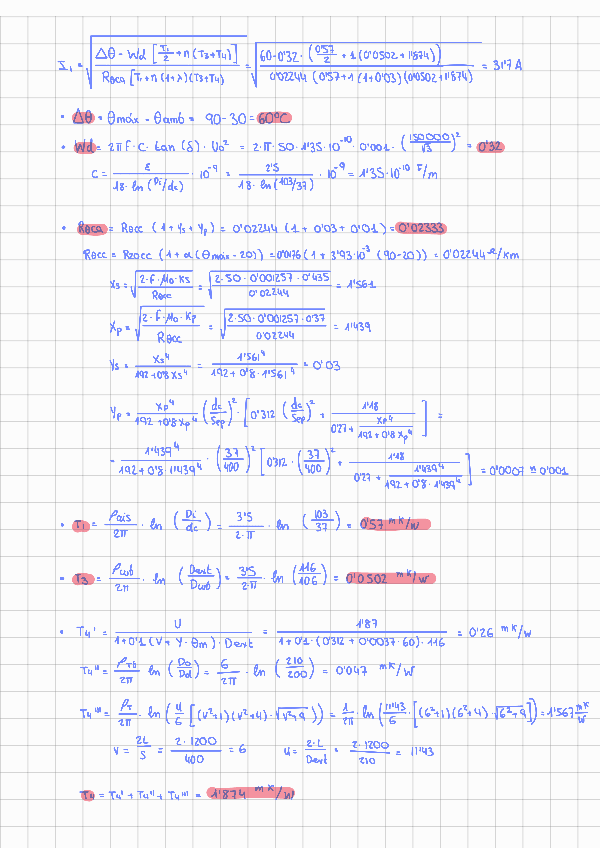 I₁ = √( Δθ - Wd [T₁/2 + n (T₃+T₄)] / RθCA [T₁+n (1+λ)(T₃+T₄)] ) = √( 60-0'32 · (0'57/2 + 1 (0'0502 + 1'874)) / 0'02244 (0'57+1 (1+0'03)(0'0502+1'874) ) = 317 A
• Δθ = θmáx - θamb = 90-30 = 60ºC
• Wd = 2πF·C·tan(δ)·U₀² = 2·π·50·1'35·10⁻¹⁰·0'001·(150000/√3)² = 0'32
C = ε / 18·ln(Di/dc) · 10⁻⁹ = 2'5 / 18·ln(103/37) · 10⁻⁹ = 1'35·10⁻¹⁰ F/m
• Rθca = Rθcc (1+Ys+Yp) = 0'02244 (1+0'03+0'01) = 0'02333
Rθcc = R20cc (1+α(θmáx-20)) = 0'0176 (1+3'93·10⁻³ (90-20)) = 0'02244 Ω/km
Xs = √( 2·f·μ₀·Ks / Rθcc ) = √( 2·50·0'001257·0'435 / 0'02244 ) = 1'561
Xp = √( 2·f·μ₀·Kp / Rθcc ) = √( 2·50·0'001257·0'37 / 0'02244 ) = 1'439
Ys = Xs⁴ / 192+0'8Xs⁴ = 1'561⁴ / 192+0'8·1'561⁴ = 0'03
Yp = Xp⁴ / 192+0'8Xp⁴ (dc/Sep)² · [0'312 (dc/Sep)² + 1'18 / 0'27 + Xp⁴ / 192+0'8Xp⁴ ] =
= 1'439⁴ / 192+0'8·1'439⁴ · (37/400)² [0'312·(37/400)² + 1'18 / 0'27 + 1'439⁴ / 192+0'8·1'439⁴ ] = 0'0007 ≈ 0'001
• T₁ = ρais / 2π · ln (Di/dc) = 3'5 / 2·π · ln (103/37) = 0'57 mK/W
• T₃ = ρcub / 2π · ln (Dext/Dcub) = 3'5 / 2·π · ln (116/106) = 0'0502 mK/W
• T₄' = U / 1+0'1(V+Y·θm)·Dext = 1'87 / 1+0'1·(0'312+0'0037·60)·116 = 0'26 mK/W
T₄'' = ρTb / 2π ln (Do/Dd) = 6 / 2π · ln (210/200) = 0'047 mK/W
T₄''' = ρT / 2π · ln (u/6 [(v²+1)(v²+4)·√v²+9]) = 1/2π · ln (11'43/6 · [(6²+1)(6²+4)·√6²+9]) = 1'567 mK/W
v = 2L/S = 2·1200 / 400 = 6 u = 2·L / Dext = 2·1200 / 210 = 11'43
T₄ = T₄' + T₄'' + T₄''' = 1'874 mK/W